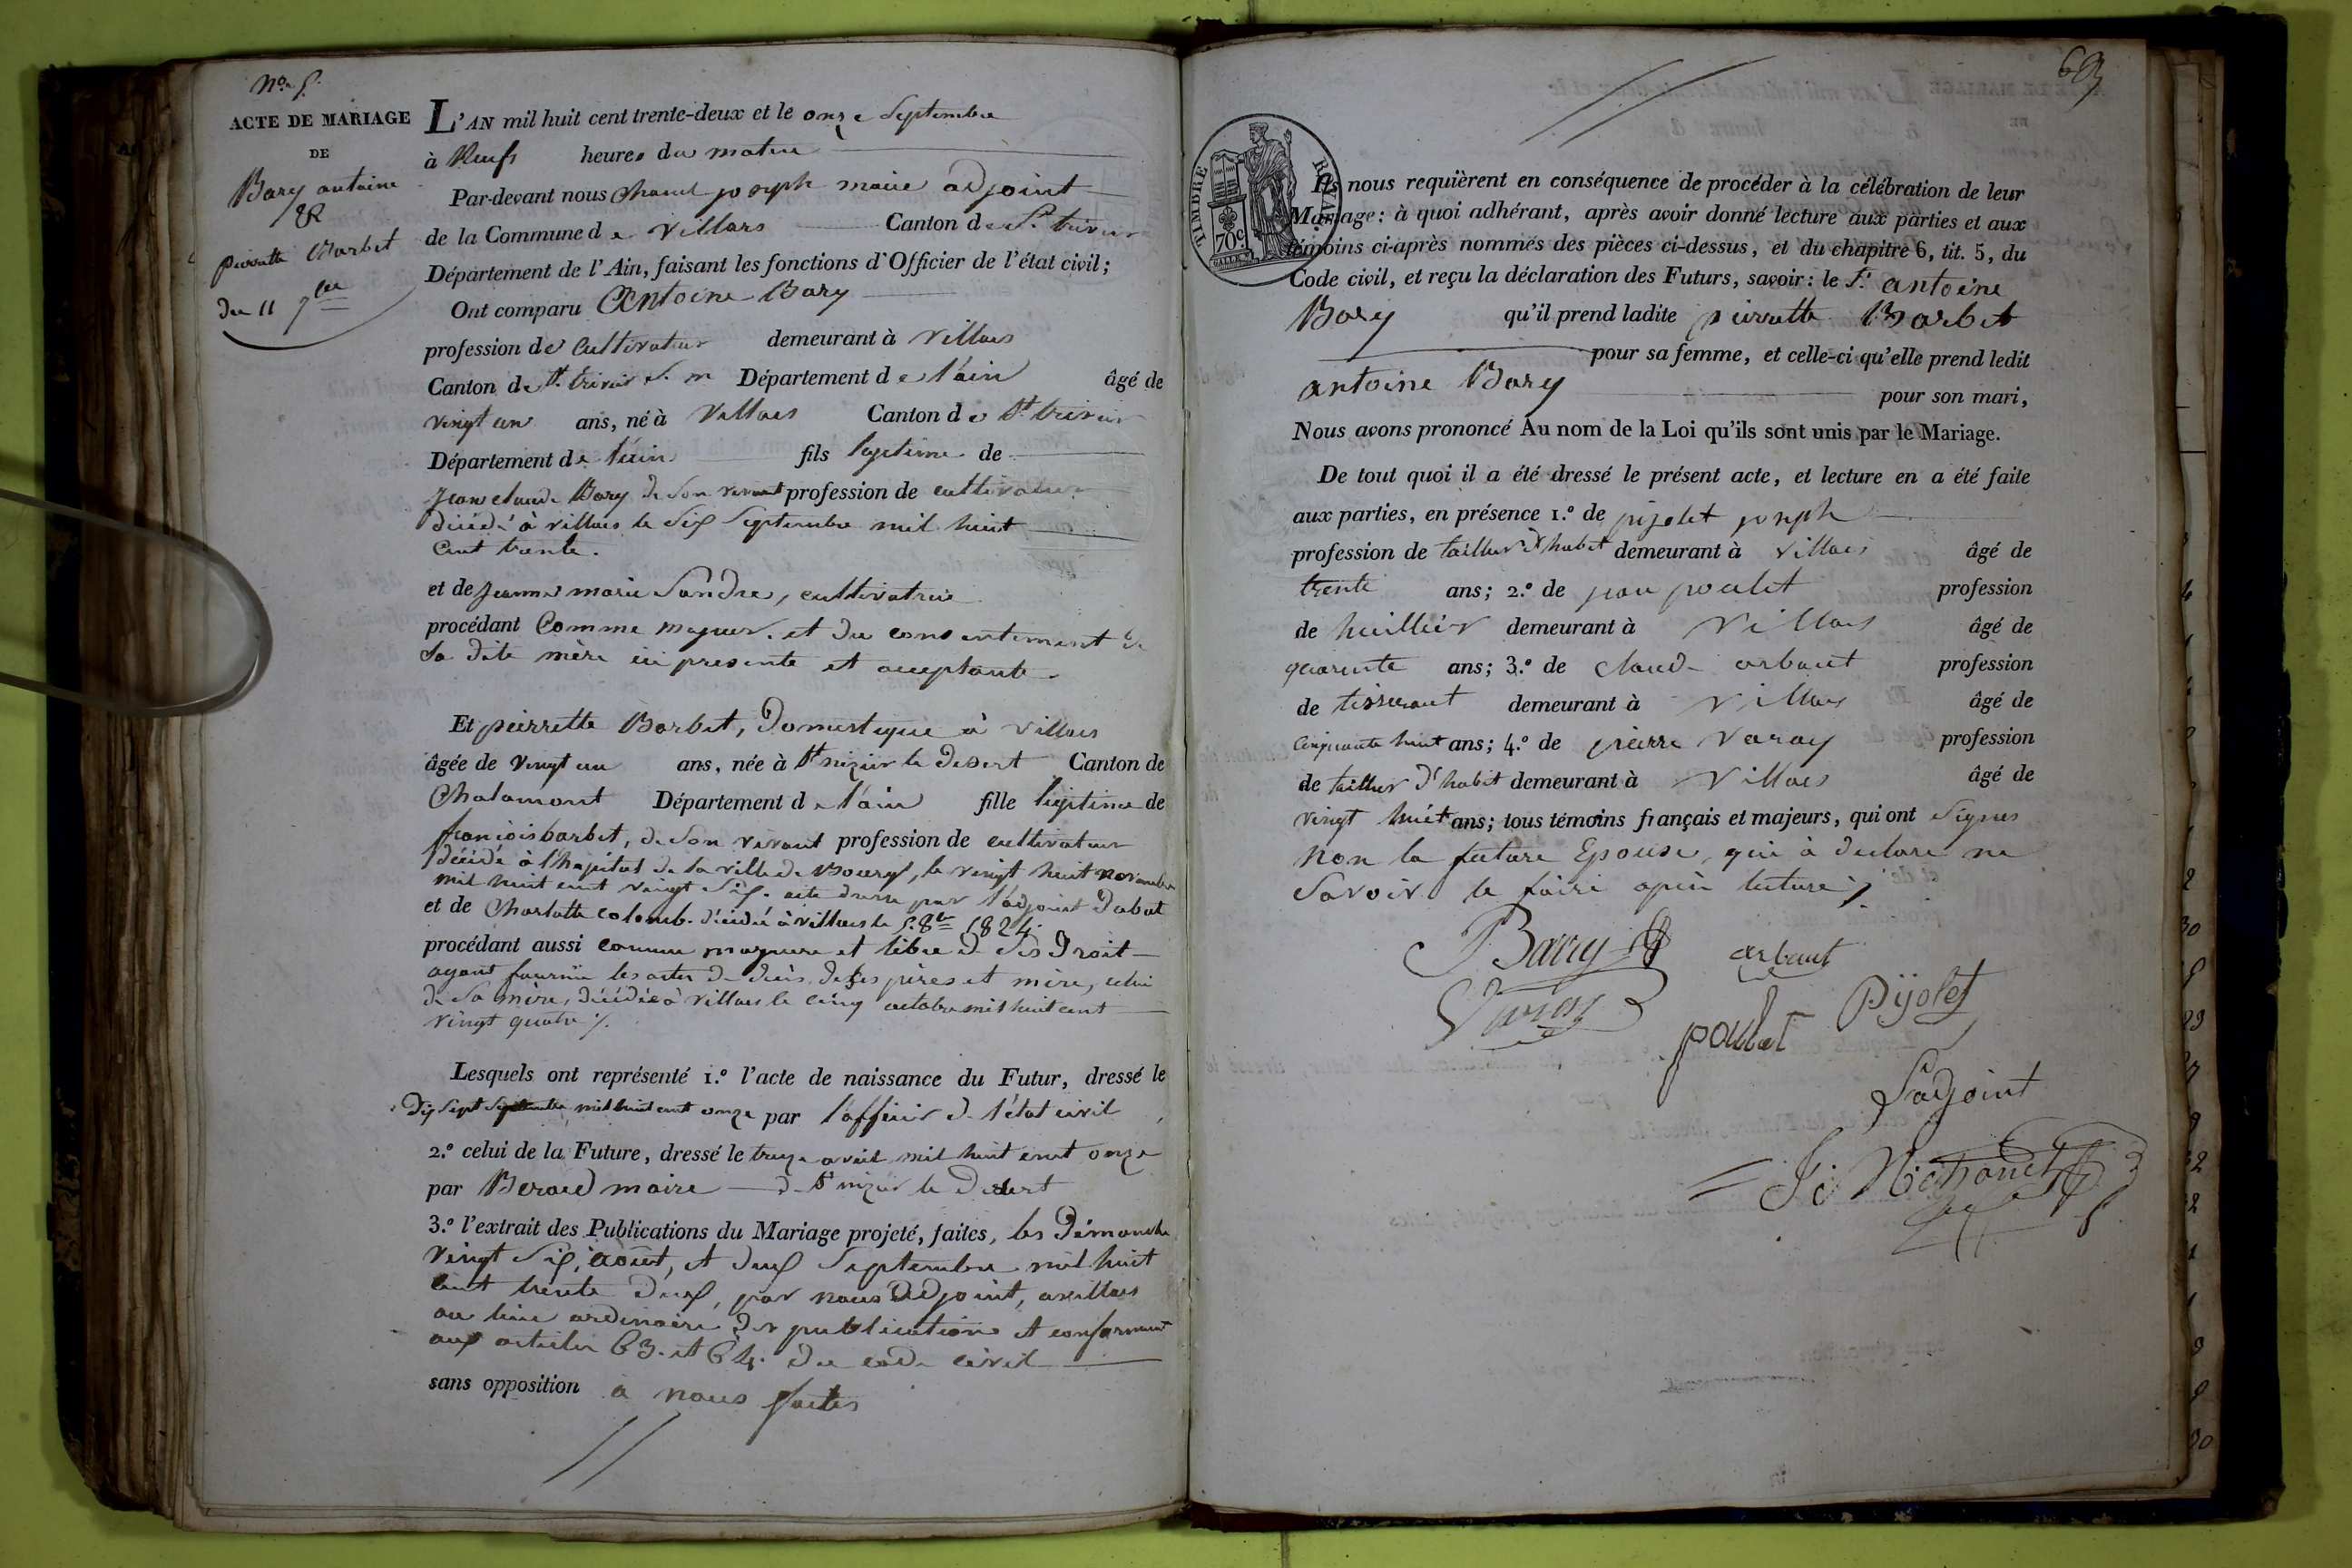 No. 5.
ACTE DE MARIAGE
DE
Bary antoine
&
pierrette Barbet
du 11 7bre
L'AN mil huit cent trente-deux et le onze Septembre
à Neufs heures du matin
Par-devant nous joseph maire adjoint
de la Commune de Villars Canton de St. trivier
Département de l'Ain, faisant les fonctions d'Officier de l'état civil;
Ont comparu Antoine Bary
profession de Cultivateur demeurant à Villars
Canton de St. trivier S. m Département de l'ain âgé de
vingt un ans, né à Villars Canton de St. trivier
Département de l'ain fils legitime de
jean claude Bary de Son vivant profession de cultivateur
décédé à villars le Six Septembre mil huit
Cent trente.
et de jeanne marie Sandre, cultivatrice
procédant Comme majeur. et du consentement de
Sa dite mère ici presente et acceptante.
Et pierrette Barbet, Domestique à Villars
âgée de vingt un ans, née à St nizier le Desert Canton de
Chalamont Département de l'ain fille legitime de
francois barbet, de Son vivant profession de cultivateur
décédé à l'hopital de la ville de Bourg, le vingt huit novembre
mil huit cent vingt Six. acte dressé par l'adjoint Dabat
et de Charlotte colomb. décédée à villars le 5. 8bre 1824.
procédant aussi comme majeure et libre de Ses Droit
ayant fournie les actes de décès de ses pères et mère, celui
de Sa mère, décédée à Villars le cinq octobre mil huit cent
vingt quatre ./.
Lesquels ont représenté 1.º l'acte de naissance du Futur, dressé le
Dix Sept Septembre mil huit cent onze par l'officier de l'état civil
2.º celui de la Future, dressé le treize avril mil huit cent onze
par Beraud maire de St nizier le Desert
3.º l'extrait des Publications du Mariage projeté, faites, les Dimanche
vingt Six, août, et deux Septembre mil huit
cent trente Deux, par nous Adjoint, a villars
au lieu ordinaire des publications et conformement
aux articles 63. et 64. du code civil
sans opposition à nous faites
69
TIMBRE ROYAL
70c.
Ils nous requièrent en conséquence de procéder à la célébration de leur
Mariage: à quoi adhérant, après avoir donné lecture aux parties et aux
témoins ci-après nommés des pièces ci-dessus, et du chapitre 6, tit. 5, du
Code civil, et reçu la déclaration des Futurs, savoir: le S.r antoine
Bary qu'il prend ladite pierrette Barbet
pour sa femme, et celle-ci qu'elle prend ledit
antoine Bary pour son mari,
Nous avons prononcé Au nom de la Loi qu'ils sont unis par le Mariage.
De tout quoi il a été dressé le présent acte, et lecture en a été faite
aux parties, en présence 1.º de pijolet joseph
profession de tailleur d'habit demeurant à Villars âgé de
trente ans; 2.º de jean poulet profession
de huillier demeurant à Villars âgé de
quarente ans; 3.º de claude arbaut profession
de tisserant demeurant à Villars âgé de
cinquante huit ans; 4.º de pierre Varay profession
de tailleur d'habit demeurant à Villars âgé de
vingt huit ans; tous témoins français et majeurs, qui ont Signés
non la future Epouse, qui à declare ne
Savoir le faire après lecture ./.
Barry
arbaut
Varay
Pijolet
poulet
L'adjoint